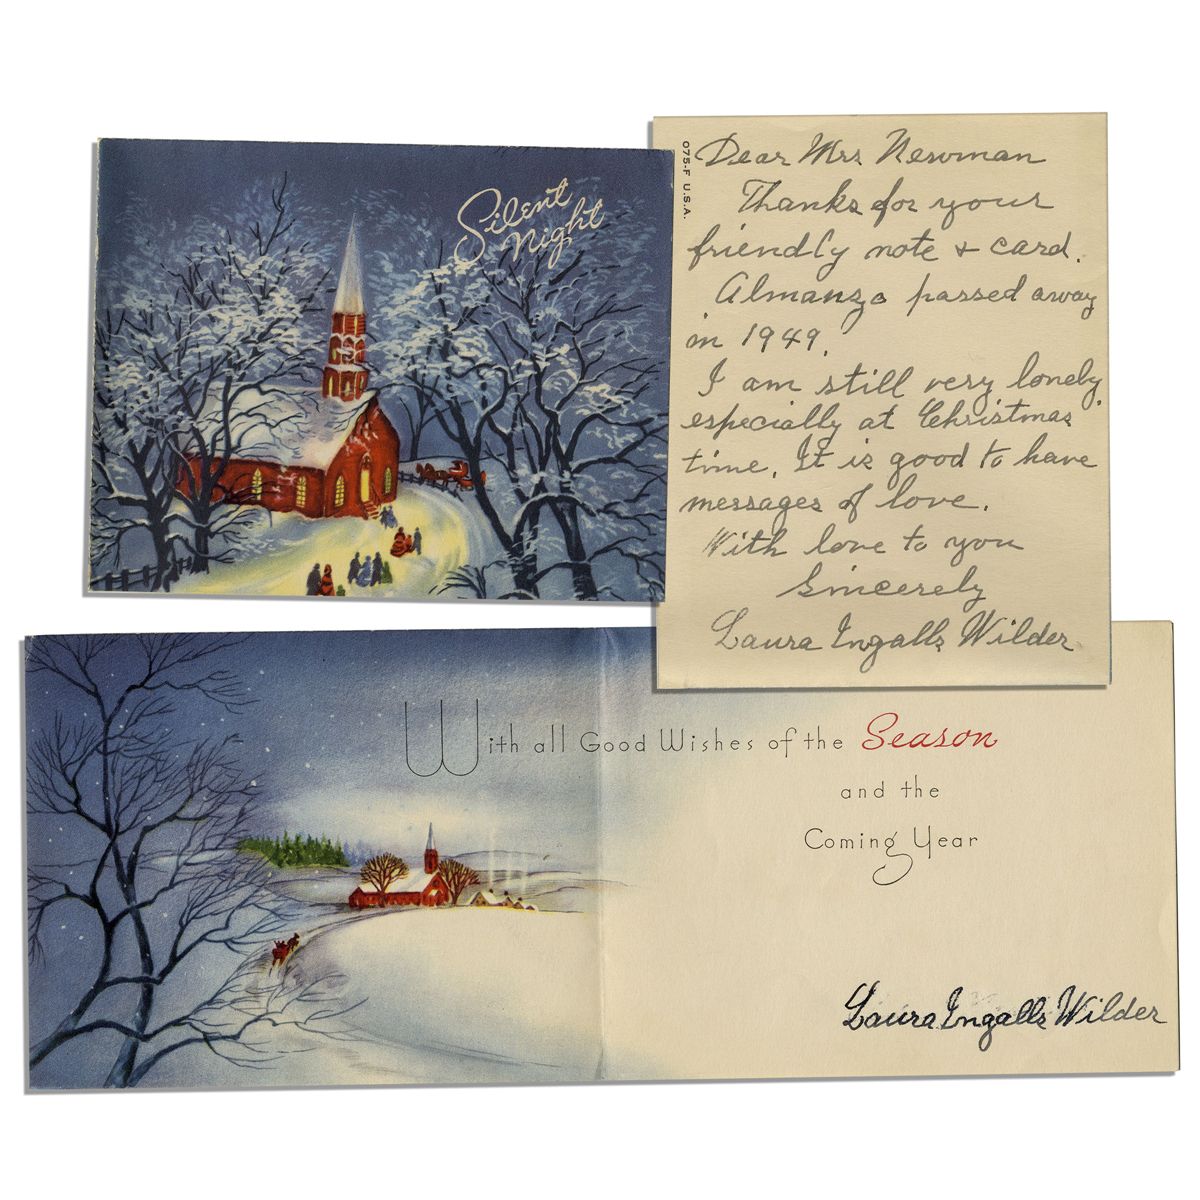 Silent
Night
075-F U.S.A.
Dear Mrs Newman
Thanks for your
friendly note & card.
Almanzo passed away
in 1949.
I am still very lonely,
especially at Christmas
time. It is good to have
messages of love.
With love to you
Sincerely
Laura Ingalls Wilder
With all Good Wishes of the Season
and the
Coming Year
Laura Ingalls Wilder